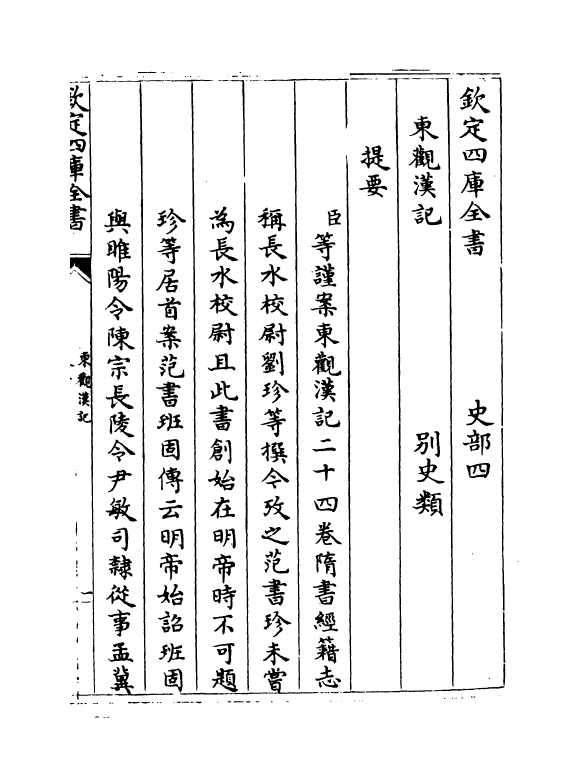 欽定四庫全書 史部四
東觀漢記 别史類
提要
臣等謹案東觀漢記二十四卷隋書經籍志
稱長水校尉劉珍等撰今攷之范書珍未嘗
為長水校尉且此書創始在明帝時不可題
珍等居首案范書班固傳云明帝始詔班固
與睢陽令陳宗長陵令尹敏司隸從事孟冀
欽定四庫全書
東觀漢記
一